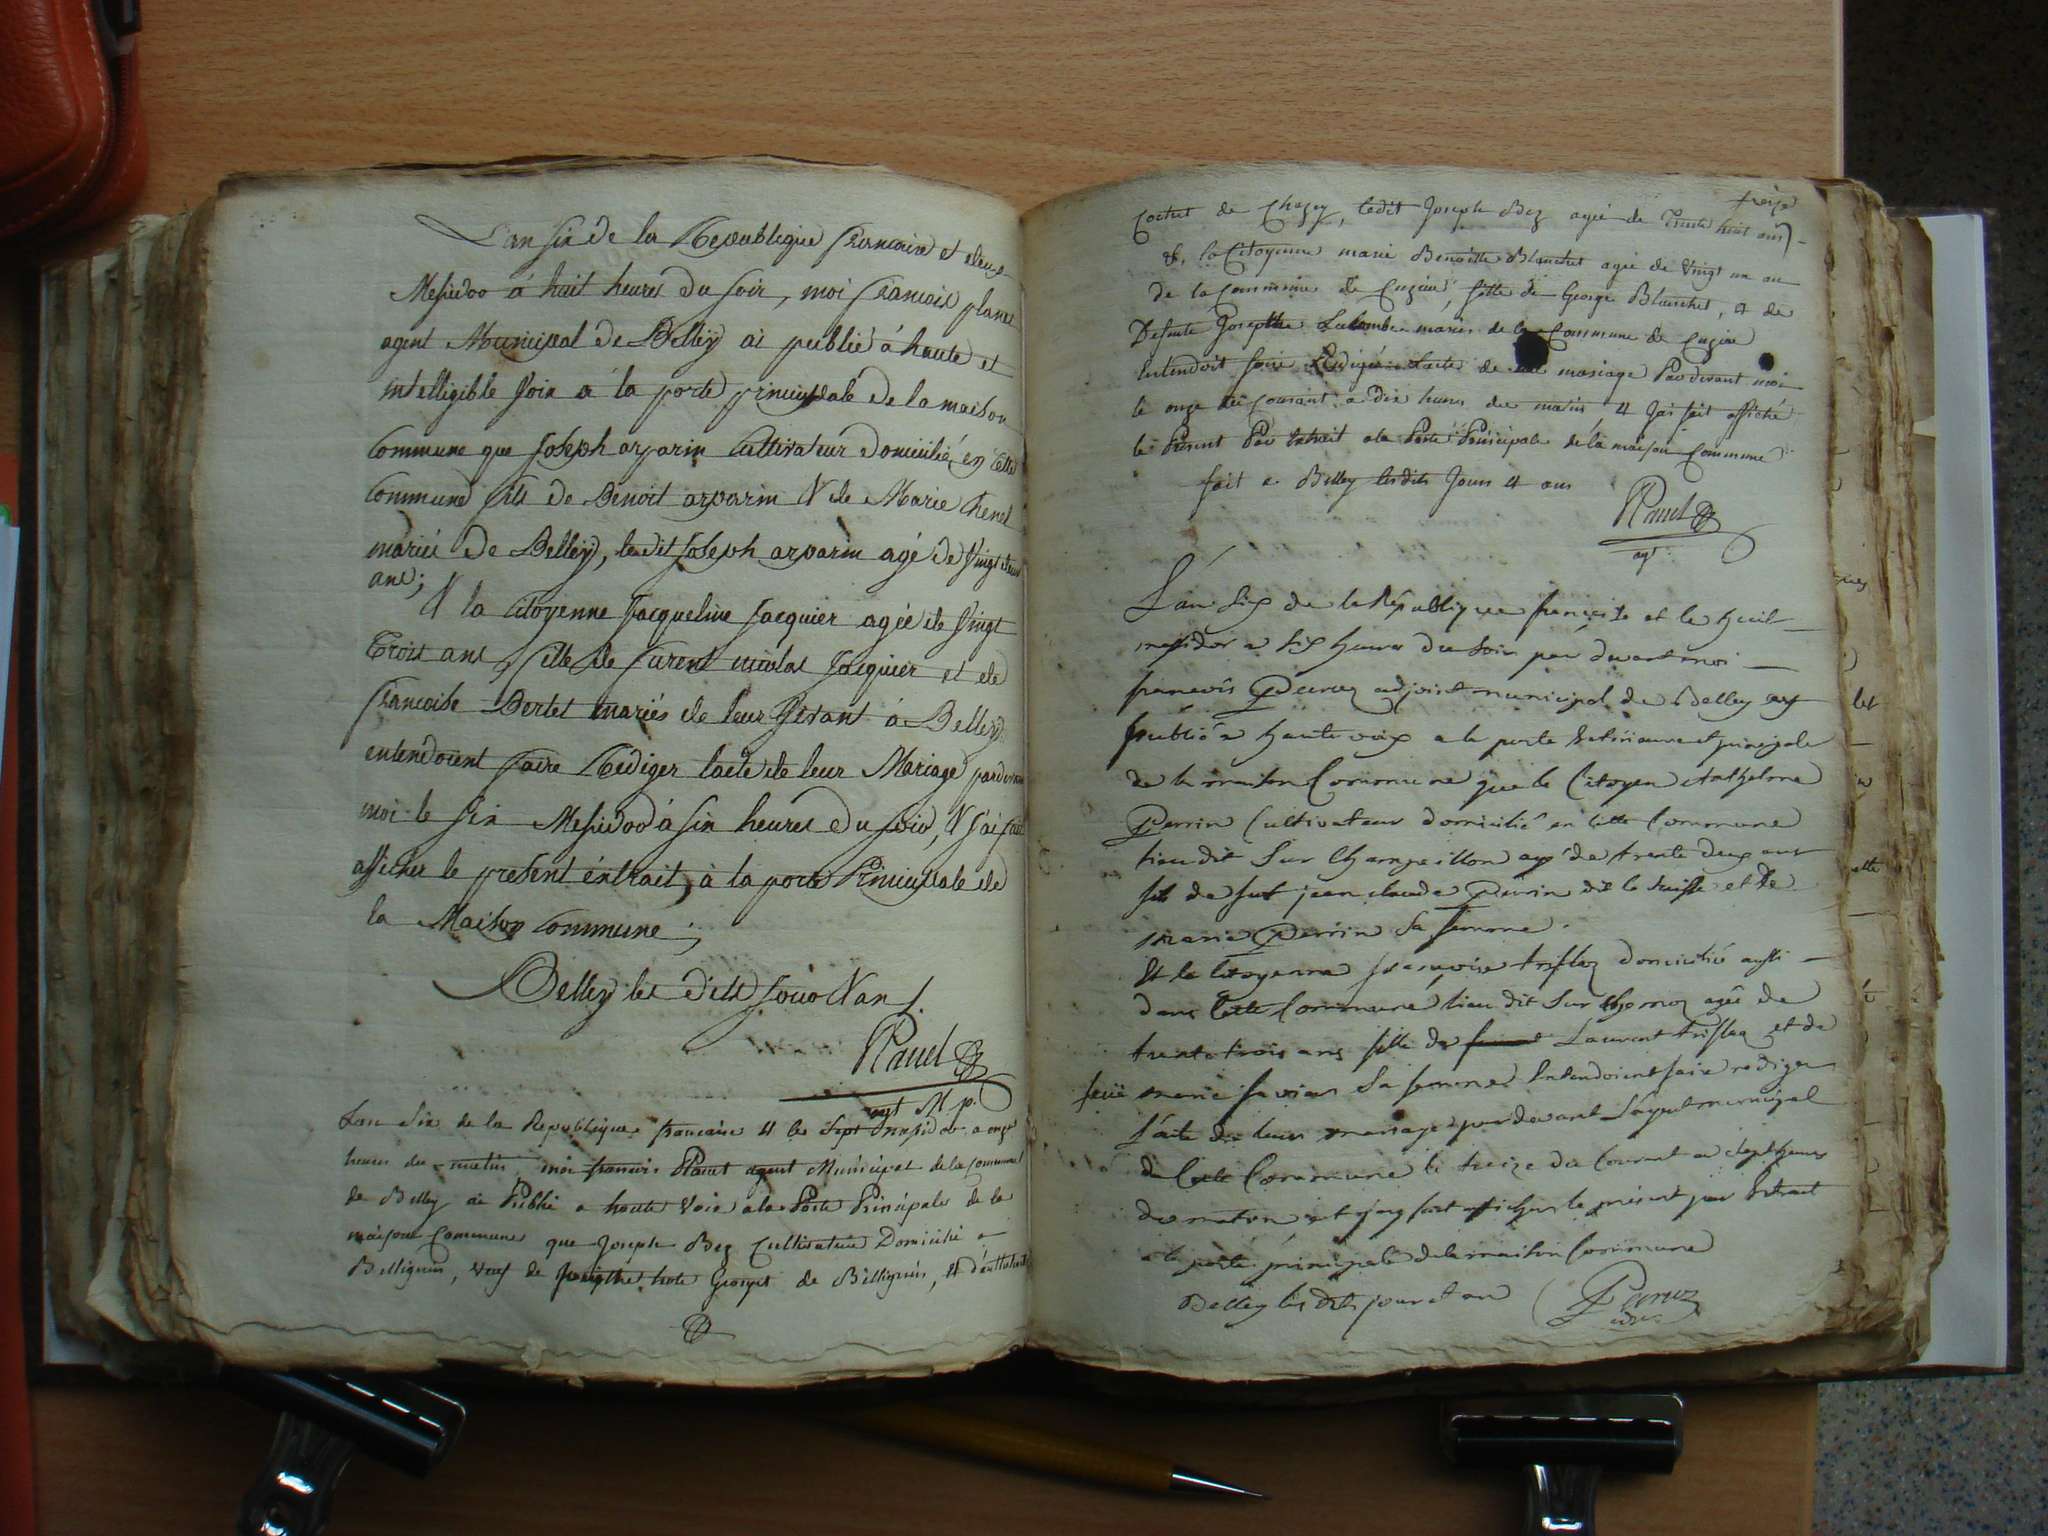 L'an six de la Republique francaise et deux
Messidor á huit heures du soir, moi francois planet
agent Municipal de Belley ai publié á haute et
intelligible voix a la porte principale de la maison
Commune que Joseph arparin Cultivateur domicilié en cette
Commune fils de Benoit arparin & de Marie Chenel
mariés de Belley, ledit Joseph arparin agé de Vingt deux
ans;
& la Citoyenne Jacqueline Jacquier agée de Vingt
Trois ans, fille de furent nicolas Jacquier et de
francoise Bertet mariés de leur Vivant á Belley
entendoient faire Rediger lacte de leur Mariage pardevant
moi le six Messidor á six heures du soir, & J'ai fait
afficher le présent éxtrait, á la porte Principale de
la Maison Commune;
Belley les dits Jour & an
agt M p.
Lan Six de la Republique francaise & le Sept messidor a onze
heures du matin moi francois agent Municipal de la Commune
de Belley ai Publié a haute Voix a la Porte Principale de la
maison Commune que Joseph Bez Cultivateur Domicilié a
Billignin, veuf de de Billignin, &
treize
de Chazey, ledit Joseph Bez agée de Trente huit ans
&. la Citoyenne marie Benoitte Blanchet agée de Vingt un an
de la Commune de Cuzieu, fille de George Blanchet, & de
Defunte Josepthe mariés de la Commune de Cuzieu
Entendoit faire Rédigér Lacte de mariage Par devant moi
le onze du Courant a dix heures du matin & Jai fait affiché
le Présent Par Extrait a la Porte Principale de la maison Commune
fait a Belley lesdits Jours & ans
agt
L'an Six de la République francaise et le huit
messidor a six heures du soir par devant moi
francois Peruz adjoint municipal de Belley ay
publié a haute voix a la porte Exterieure et principale
de la maison Commune que le Citoyen Anthelme
Perrin Cultivateur domicilié en cette Commune
lieu dit Sur Champeillon agé de trente deux ans
fils de fut jean claude Perrin dit le suisse et de
Marie Perrin Sa femme.
Et la Citoyenne francoise domicilié aussi
dans cette Commune lieu dit Sur agée de
trente trois ans fille de Laurent et de
feüe marie Sa femme Entendoient faire rediger
l'acte de leur mariage par devant l'agent municipal
de Cette Commune le treize du Courant a sept heures
du matin et j'ay fait afficher le présent par Extrait
a la porte principale de la maison Commune
Belley les dits jour et an Peruz